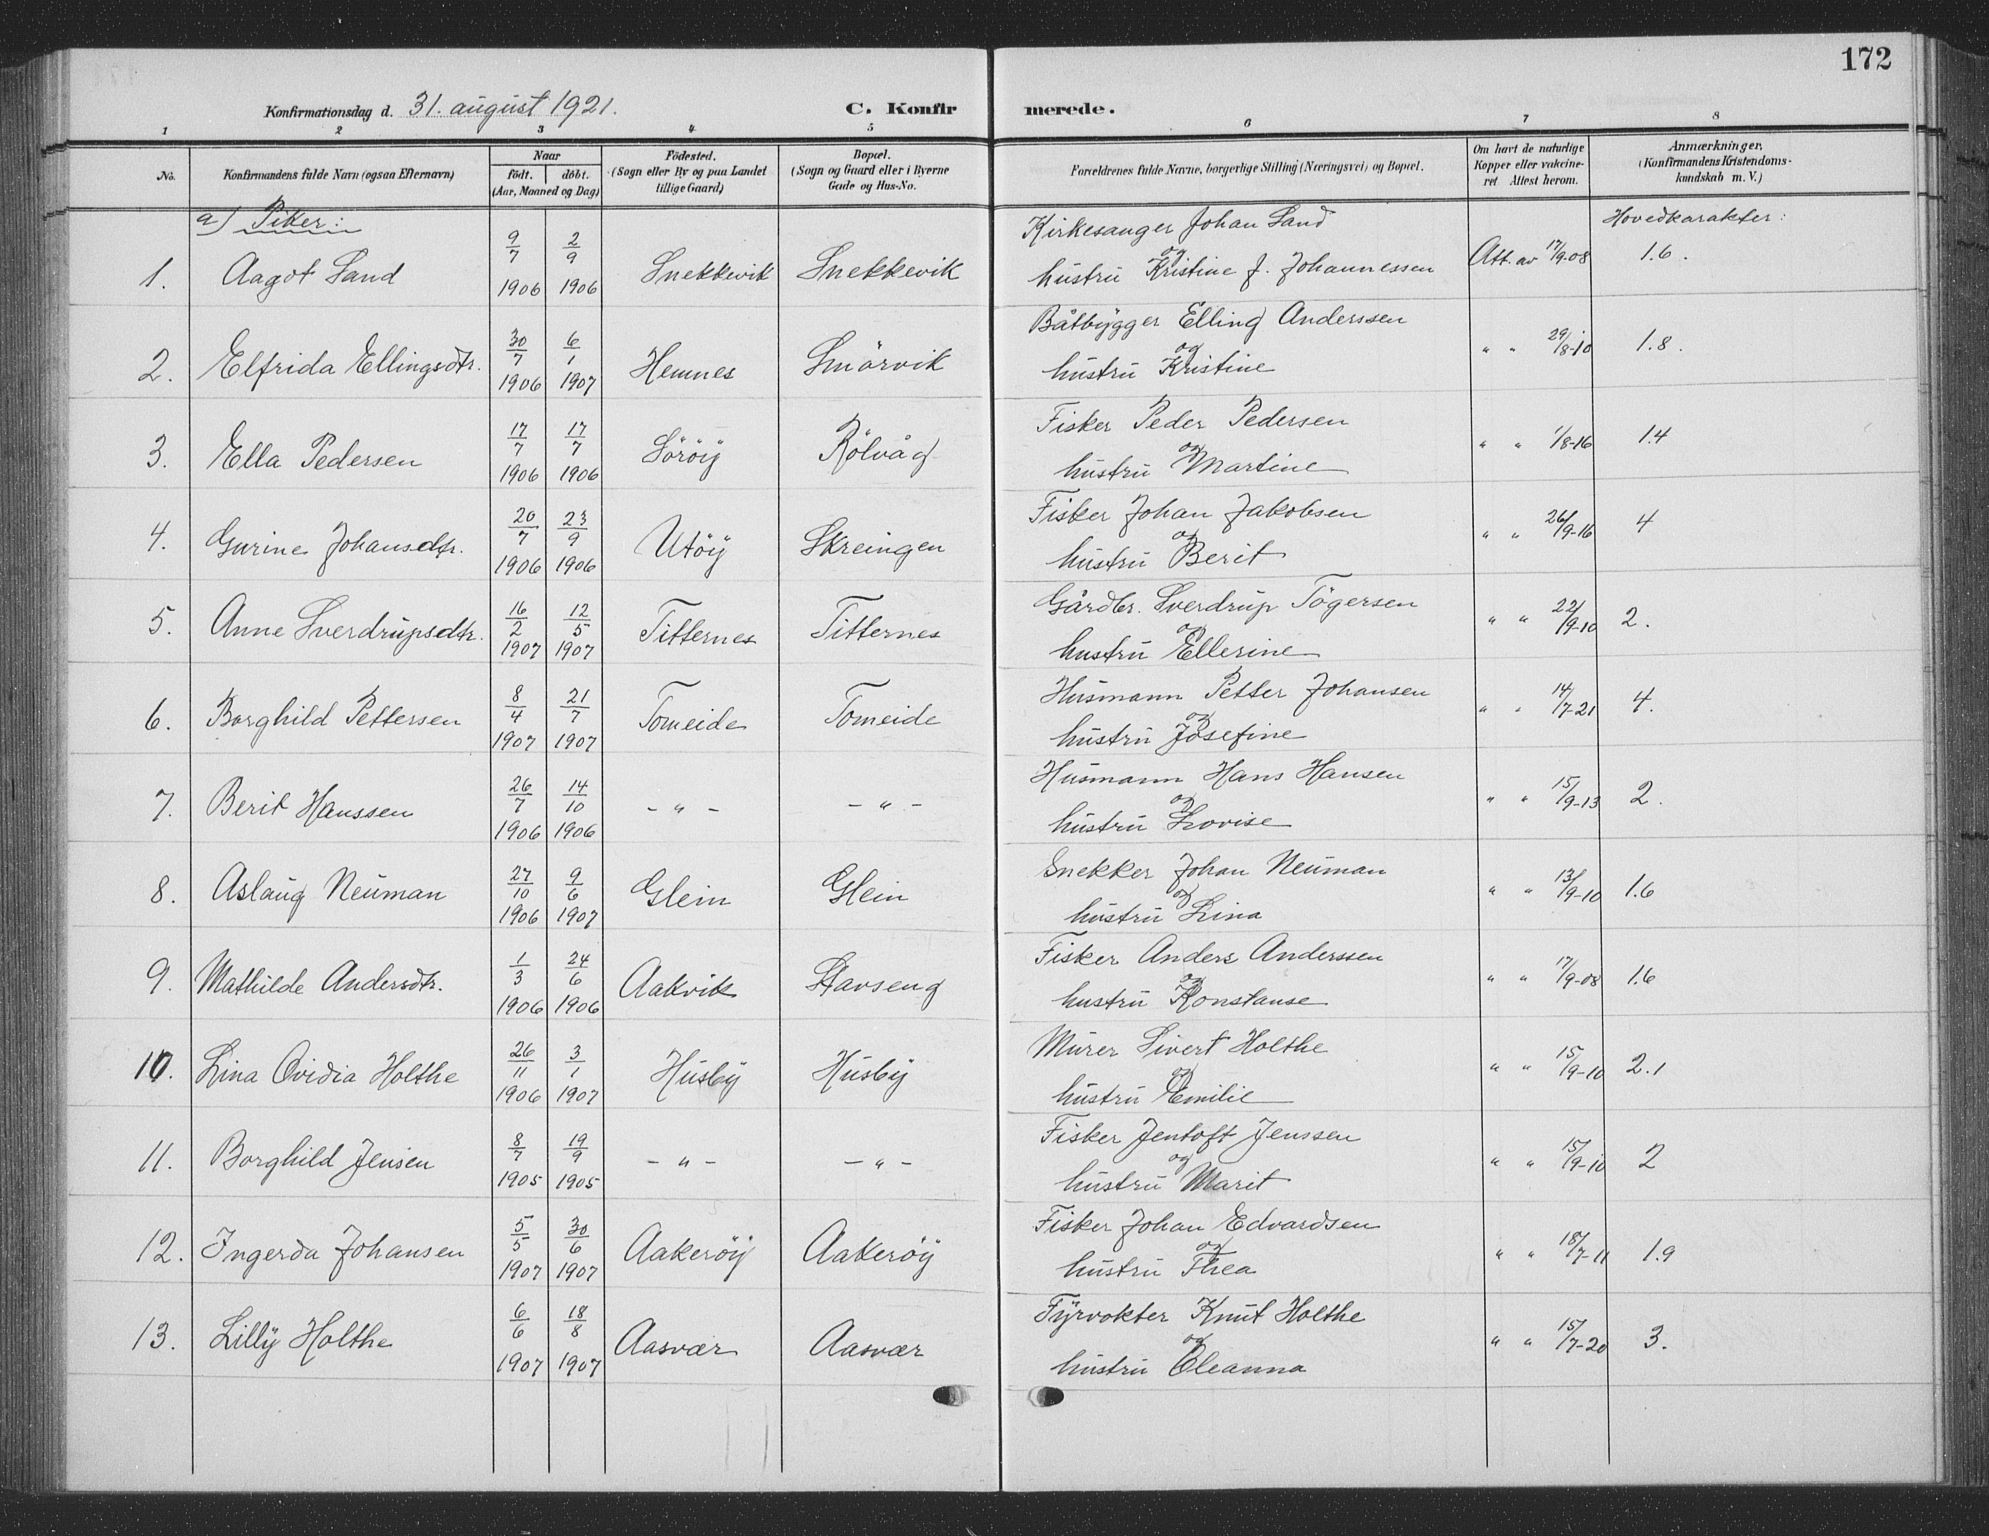 172
Konfirmationsdag d. 31. august 1921. C. Konfirmerede.
1 2 3 4 5 6 7 8
No. Konfirmandens fulde Navn (ogsaa Efternavn) Naar født. døbt. (Aar, Maaned og Dag) Fødested. (Sogn eller By og paa Landet tillige Gaard) Bopæl. (Sogn og Gaard eller i Byerne Gade og Hus-No. Forældrenes fulde Navne, borgerlige Stilling (Næringsvei) og Bopæl. Om havt de naturlige Kopper eller vakcineret Attest herom. Anmærkninger, (Konfirmandens Kristendomskundskab m. V.)
a) Piker: Hovedkarakter:
1. Aagot Sand 9/7 1906 2/9 1906 Snekkevik Snekkevik Kirkesanger Johan Sand og
hustru Kristine J. Johannessen Att. av 17/9-08 1.6.
2. Elfrida Ellingsdtr. 30/7 1906 6/1 1907 Hemnes Smörvik Båtbygger Elling Anderssen og
hustru Kristine " " 29/8-10 1.8.
3. Ella Pedersen 17/7 1906 17/7 1906 Söröy Rölvåg Fisker Peder Pedersen og
hustru Martine " " 1/8-16 1.4
4. Gurine Johansdtr. 20/7 1906 23/9 1906 Utöy Skreingen Fisker Johan Jakobsen og
hustru Berit " " 26/9-16 4
5. Anne Sverdrupsdtr. 16/2 1907 12/5 1907 Titternes Titternes Gårdbr. Sverdrup Tögersen og
hustru Ellerine " " 22/9-10 2.
6. Borghild Pettersen 8/4 1907 21/7 1907 Tomeide Tomeide Husmann Petter Johansen og
hustru Josefine " " 14/7-21 4.
7. Berit Hanssen 26/7 1906 14/10 1906 - " - - " - Husmann Hans Hansen og
hustru Lovise " " 15/9-13 2.
8. Aslaug Neuman 27/10 1906 9/6 1907 Glein Glein Snekker Johan Neuman og
hustru Lina " " 13/9-10 1.6
9. Mathilde Andersdtr. 1/3 1906 24/6 1906 Aakvik Stavseng Fisker Anders Anderssen og
hustru Konstanse " " 17/9-08 1.6
10. Lina Ovidia Holthe 26/11 1906 3/1 1907 Husby Husby Murer Sivert Holthe og
hustru Emilie " " 15/9-10 2.1
11. Borghild Jensen 8/7 1905 19/9 1905 - " - - " - Fisker Jentoft Jenssen og
hustru Marit " " 15/9-10 2
12. Ingerda Johansen 5/5 1907 30/6 1907 Aakeröy Aakeröy Fisker Johan Edvardsen og
hustru Thea " " 18/7-11 1.9
13. Lilly Holthe 6/6 1907 18/8 1907 Aasvær Aasvær Fyrvokter Knut Holthe og
hustru Oleanna " " 15/7-20 3.